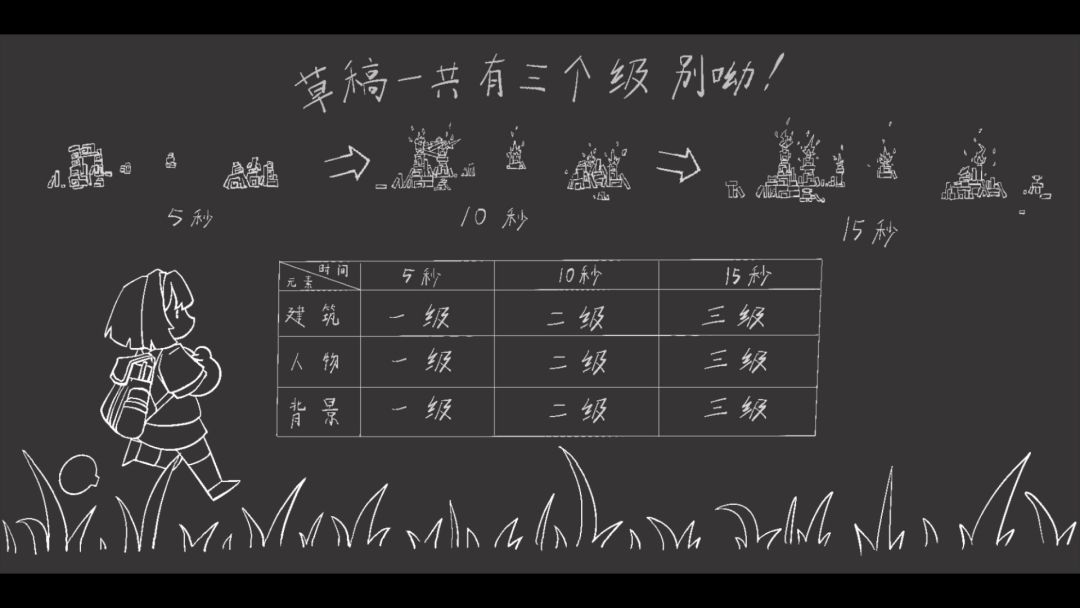 草稿一共有三个级别呦！
5秒 10秒 15秒
时间 元素 5秒 10秒 15秒
建筑 一级 二级 三级
人物 一级 二级 三级
背景 一级 二级 三级